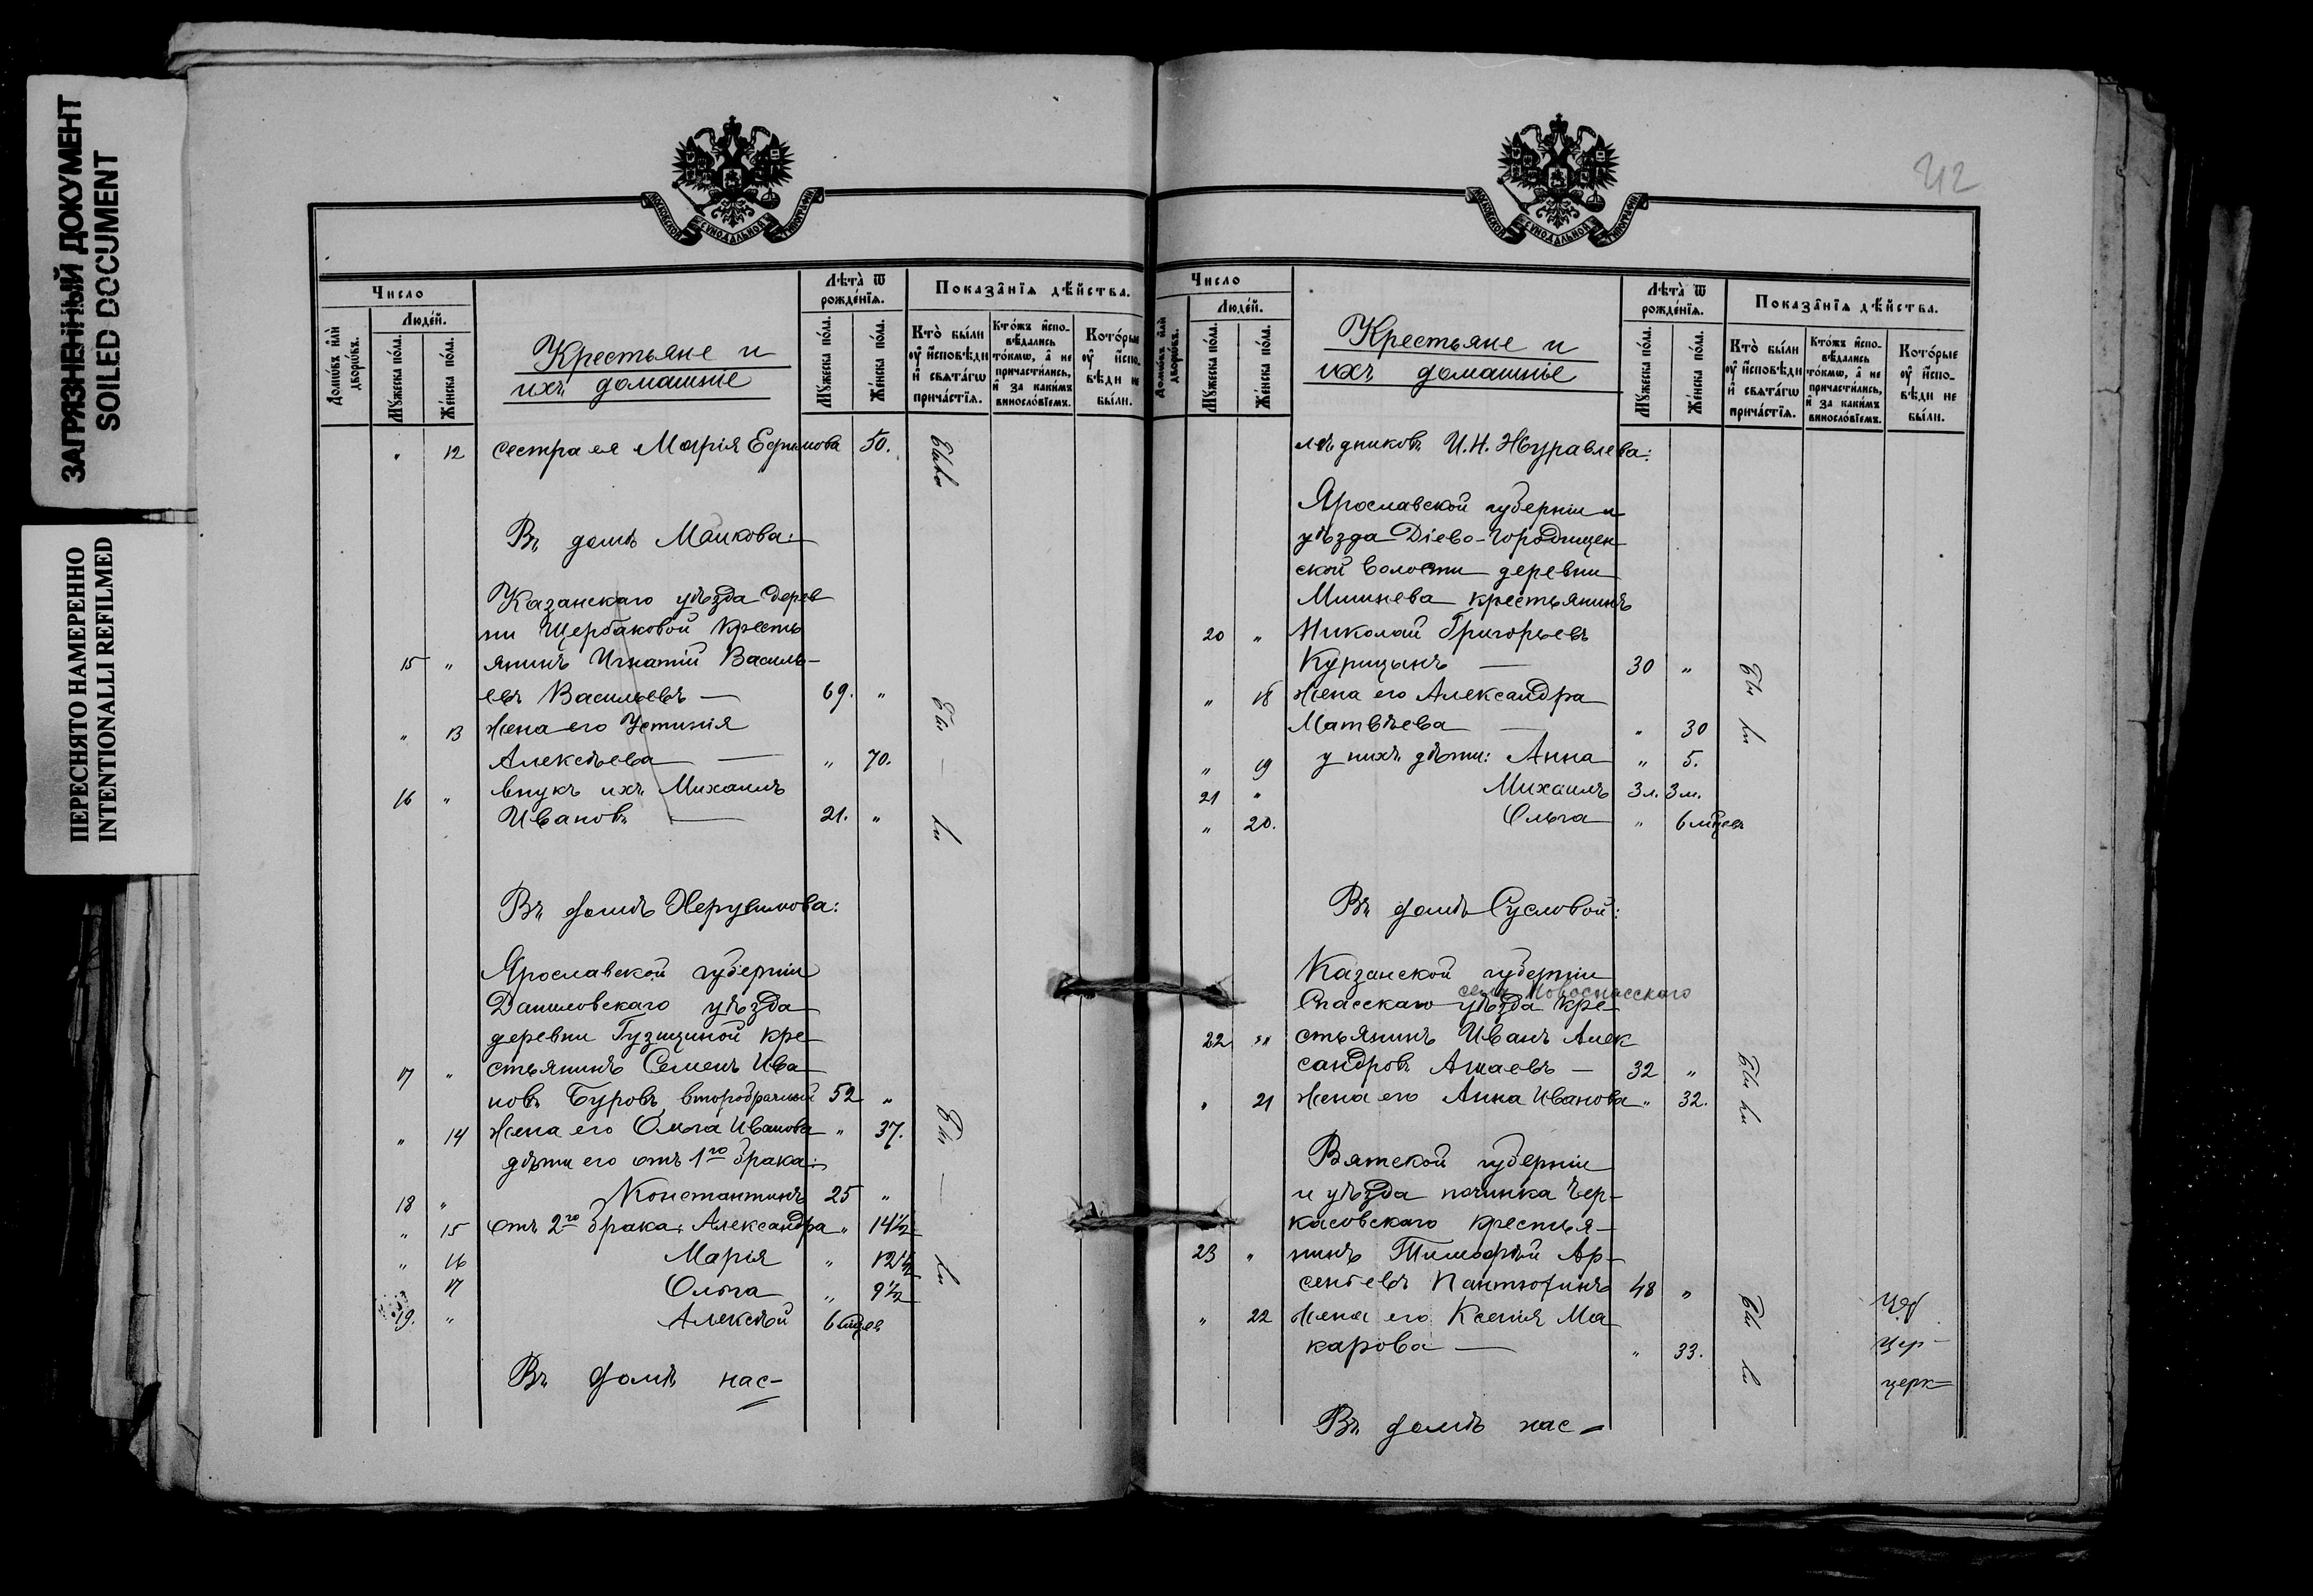 ЗАГРЯЗНЕННЫЙ ДОКУМЕНТ
SOILED DOCUMENT
ПЕРЕСНЯТО НАМЕРЕННО
INTENTIONALLI REFILMED
МОСКОВСКОЙ СѴНОДАЛЬНОЙ ТИПОГРАФІИ
Число
Людéй.
Домѡвъ и҆лѝ дворѡвъ.
Мꙋ́жеска по́ла.
Же́нска по́ла.
Крестьяне и
ихъ домашніе
Лѣта̀ ѿ рожде́нїѧ.
Мꙋ́жеска по́ла.
Же́нска по́ла.
Показа̑нїѧ дѣ́йства.
Кто̀ бы́ли оу҆ и҆́сповѣди и҆ свѧта́гѡ прича́стїѧ.
Кто́жъ и҆спо-вѣ́дались то́кмѡ, а҆ не причасти́лись, и҆ за каки́мъ винослóвїемъ.
Кото́рые оу҆ и҆́спо-вѣди не бы́ли.
" 12 сестра ея Марія Ефимова 50. Была
Въ домѣ Маикова:
Казанскаго уѣзда дерев
ни Щербаковой кресть
15 " янинъ Игнатій Василь-
евъ Васильевъ — 69. "
" 13 жена его Устинія
Алексѣева — " 70.
16 " внукъ ихъ Михаилъ
Ивановъ — 21. "
Бы — ли
Въ домѣ Херувимова:
Ярославской губерніи
Даниловскаго уѣзда
деревни Гузициной кре-
17 " стьянинъ Семенъ Ива
новъ Буровъ, второбрачный 52 "
" 14 жена его Ольга Иванова " 37.
дѣти его отъ 1го брака:
18 " Константинъ 25 "
" 15 отъ 2го брака: Александра " 14½
" 16 Марія " 12½
17 Ольга " 9½
19. " Алексѣй 6 мцев
Бы — ли
Въ домѣ нас-
42
Число
Людéй.
Домѡвъ и҆лѝ дворѡвъ.
Мꙋ́жеска по́ла.
Же́нска по́ла.
Крестьяне и
ихъ домашніе
Лѣта̀ ѿ рожде́нїѧ.
Мꙋ́жеска по́ла.
Же́нска по́ла.
Показа̑нїѧ дѣ́йства.
Кто̀ бы́ли оу҆ и҆́сповѣди и҆ свѧта́гѡ прича́стїѧ.
Кто́жъ и҆спо-вѣ́дались то́кмѡ, а҆ не причасти́лись, и҆ за каки́мъ винослóвїемъ.
Кото́рые оу҆ и҆́спо-вѣди не бы́ли.
лѣдниковъ И. Н. Журавлева:
Ярославской губерніи и
уѣзда Діево-Городищен
ской волости деревни
Мишнева крестьянинъ
20 " Николай Григорьевъ
Курицынъ — 30 "
" 18 жена его Александра
Матвѣева — " 30
" 19 у нихъ дѣти: Анна " 5.
21 " Михаилъ 3 л. 3 м.
" 20. Ольга " 6 мцевъ
Бы ли
Въ домѣ Сусловой:
Казанской губерніи
села Новоспасскаго
Спасскаго уѣзда кре-
22 " стьянинъ Иванъ Алек
сандровъ Ашаевъ — 32 "
" 21 жена его Анна Иванова " 32.
Бы ли
Вятской губерніи
и уѣзда починка Чер-
касовскаго крестья-
23 " нинъ Тимофѣй Ар-
сеньевъ Пантюхинъ 48 "
" 22 жена его Ксенія Ма
карова — " 33.
Бы ли
цер-
церк
Въ домѣ нас-